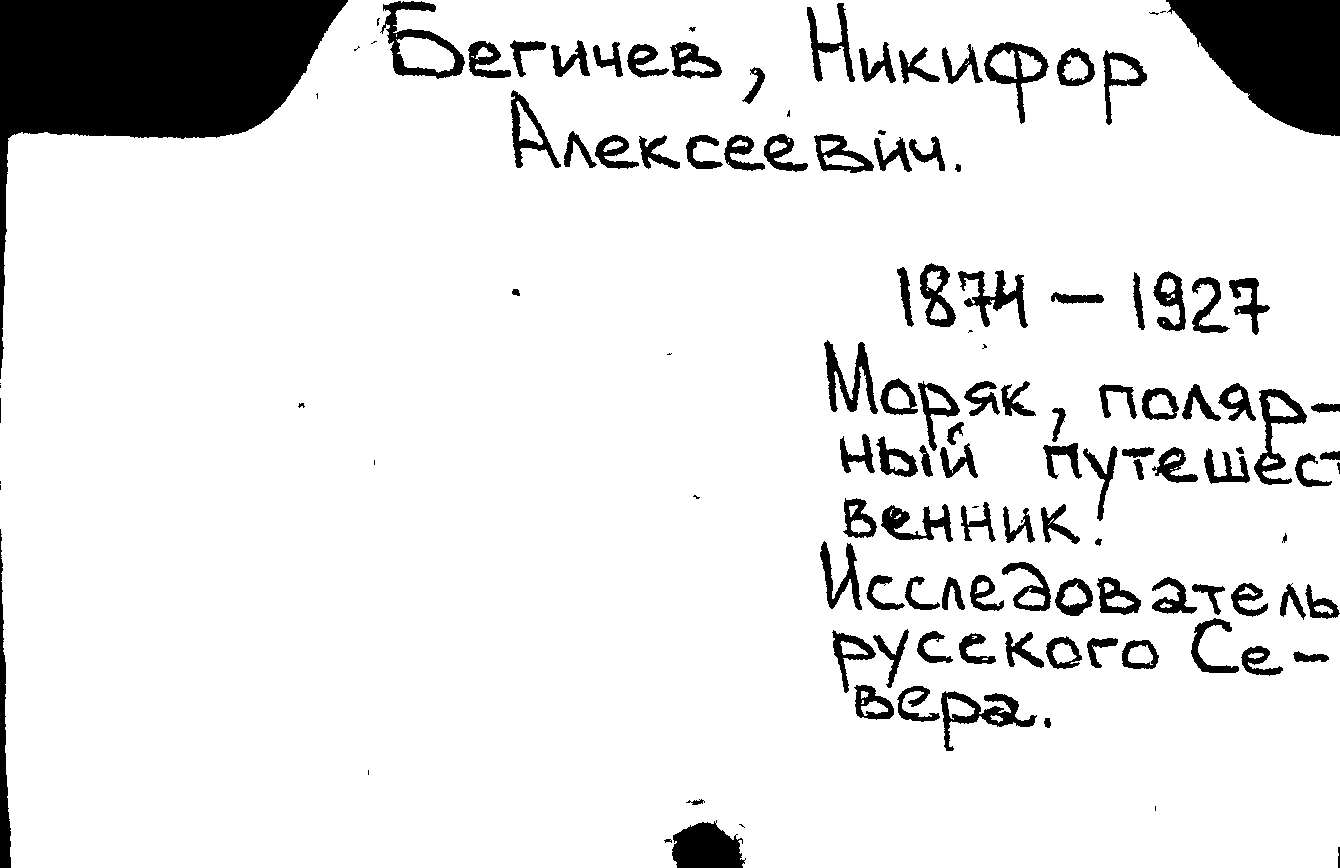 Бегичев, Никифор
Алексеевич.
1874 – 1927
Моряк, поляр-
ный путешест
венник.
Исследователь
русского Се-
вера.